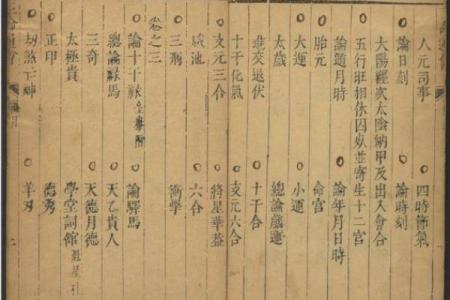 人元司事 四時節氣
論日刻 論時刻
太陽躔次太陰納甲及出入會合
五行旺相休囚並寄生十二宮
論遁月時 論年月日時
胎元 命宮
大運 小運
太歲 總論歲運
進交退伏 十干合
十干化氣 支元六合
支元三合 將星華蓋
咸池 六合
三刑 衝擊
卷之三
論十干祿 論驛馬
總論祿馬 天乙貴人
三奇 天德月德
太極貴 學堂詞館
正甲 德秀
劫煞亡神 羊刃
二